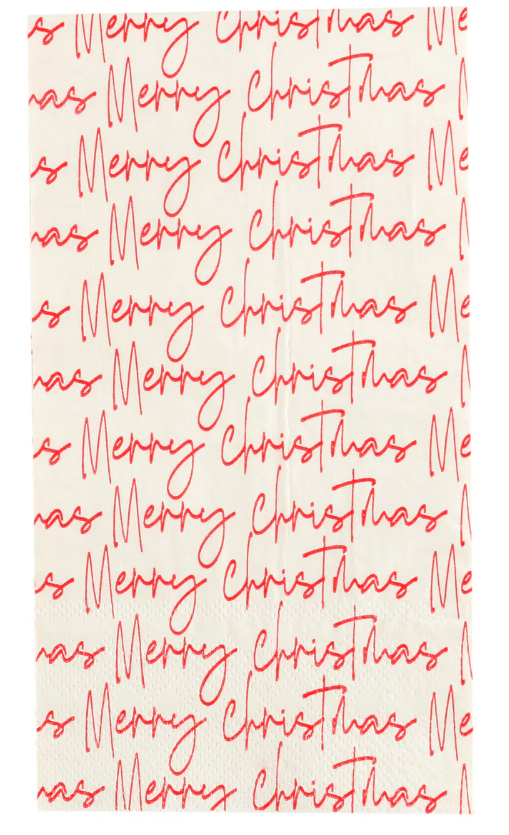 s Merry Christmas Me
as Merry Christmas M
s Merry Christmas Me
as Merry Christmas M
s Merry Christmas Me
as Merry Christmas M
s Merry Christmas Me
as Merry Christmas M
s Merry Christmas Me
as Merry Christmas M
s Merry Christmas Me
as Merry Christmas M